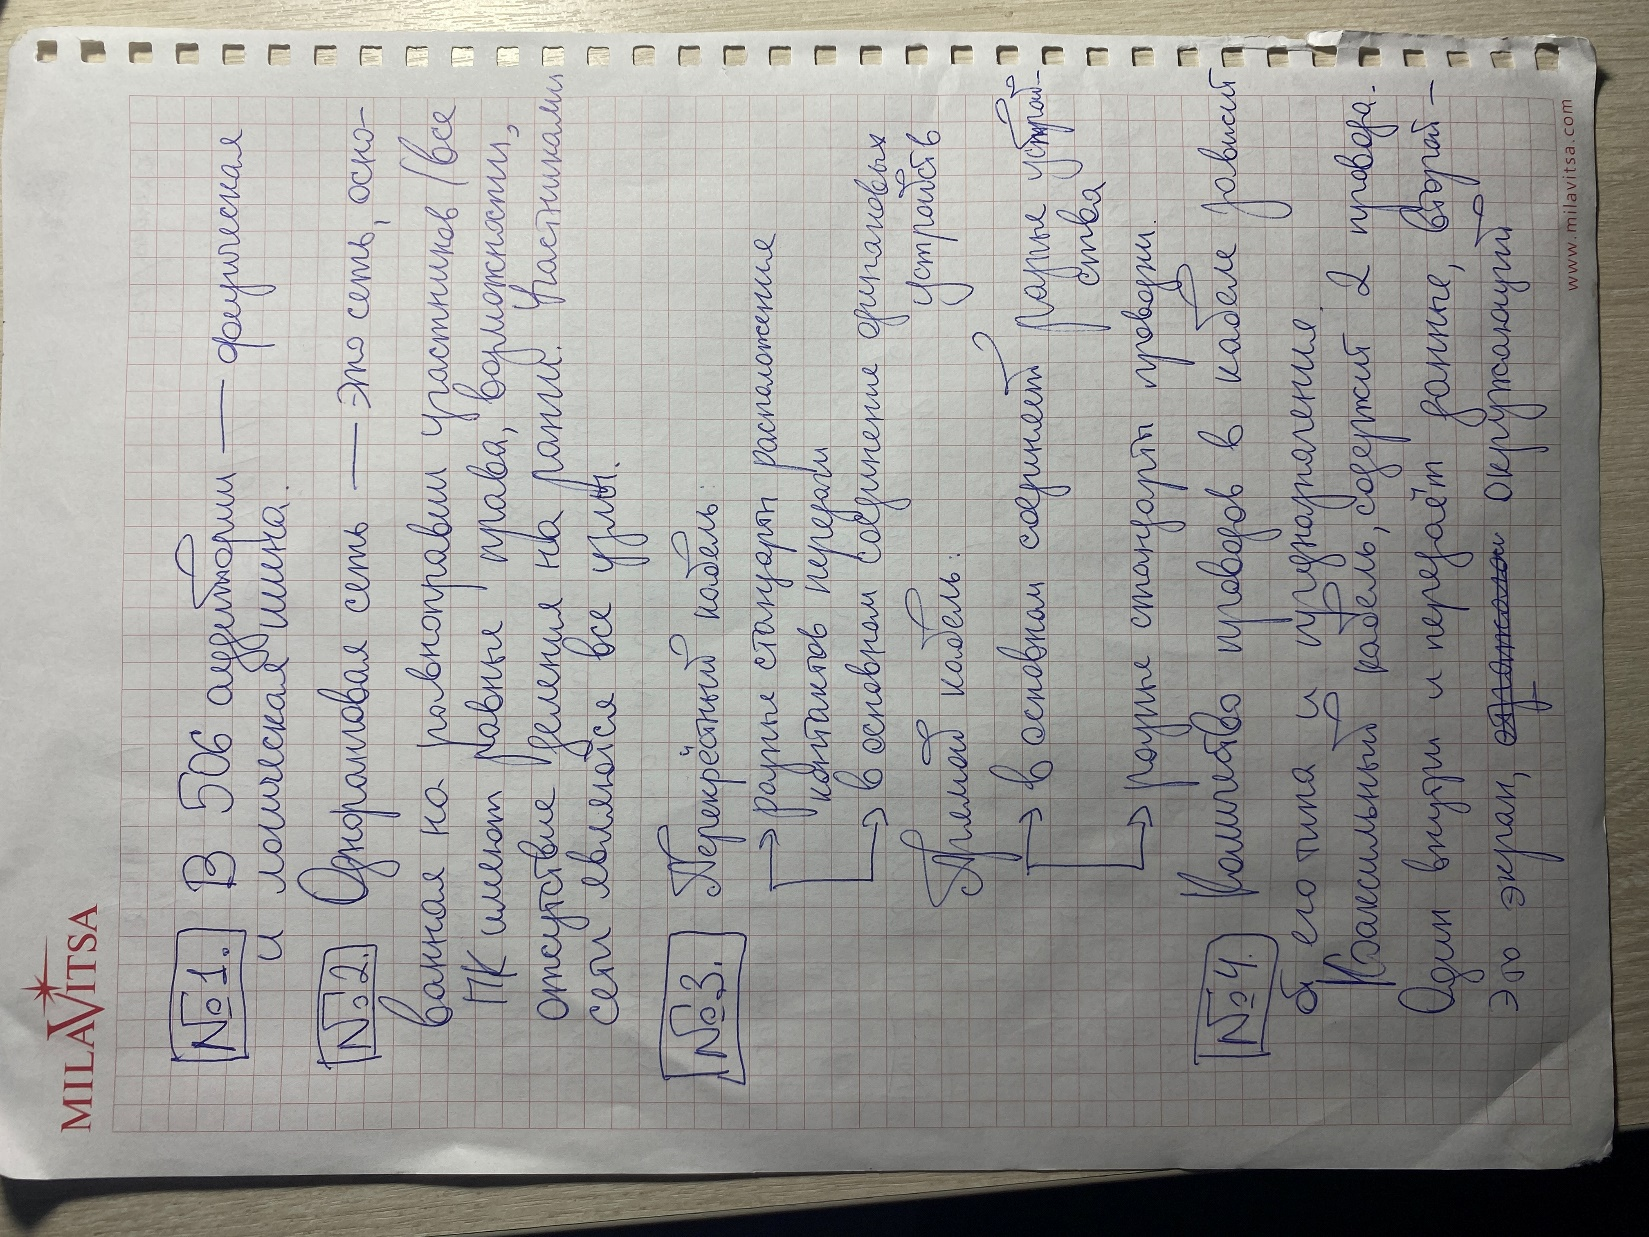 MILAVITSA
№1. В 506 аудитории — физическая
и логическая шина.
№2. Одноранговая сеть — это сеть, осно-
ванная на равноправии участников (все
ПК имеют равные права, возможности,
отсутствие деления на ранги. Участниками
сети являются все узлы.
№3. Перекрёстный кабель:
→ разные стандарты расположения
контактов передачи
→ в основном соединение одинаковых
устройств
Прямой кабель:
→ в основном соединяет разные устрой-
ства
→ разные стандарты проводки.
№4. Количество проводов в кабеле зависит
от его типа и предназначения.
Коаксильный кабель, содержит 2 провода.
Один внутри и передаёт данные, второй –
это экран, окружающий
www.milavitsa.com